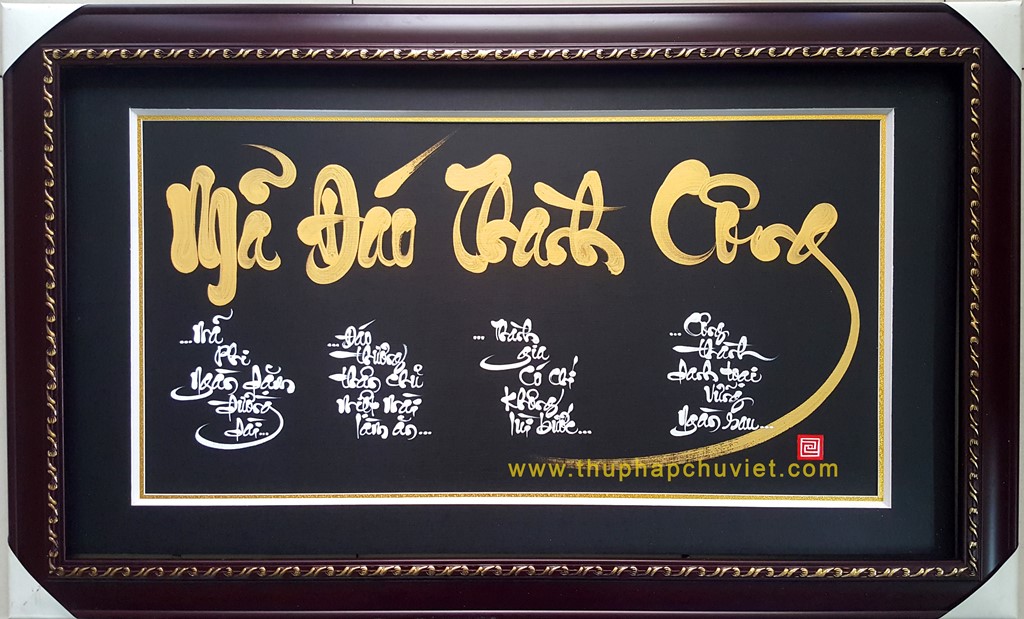 Mã Đáo Thành Công
...Mã
Phi
Ngàn Dặm
Đường
Dài...
...Đáo
thưởng
thân chủ
miệt mài
làm ăn...
...Thành
gia
Có chí
không
lùi bước...
...Công
thành
danh toại
vững
ngàn sau...
www.thuphapchuviet.com